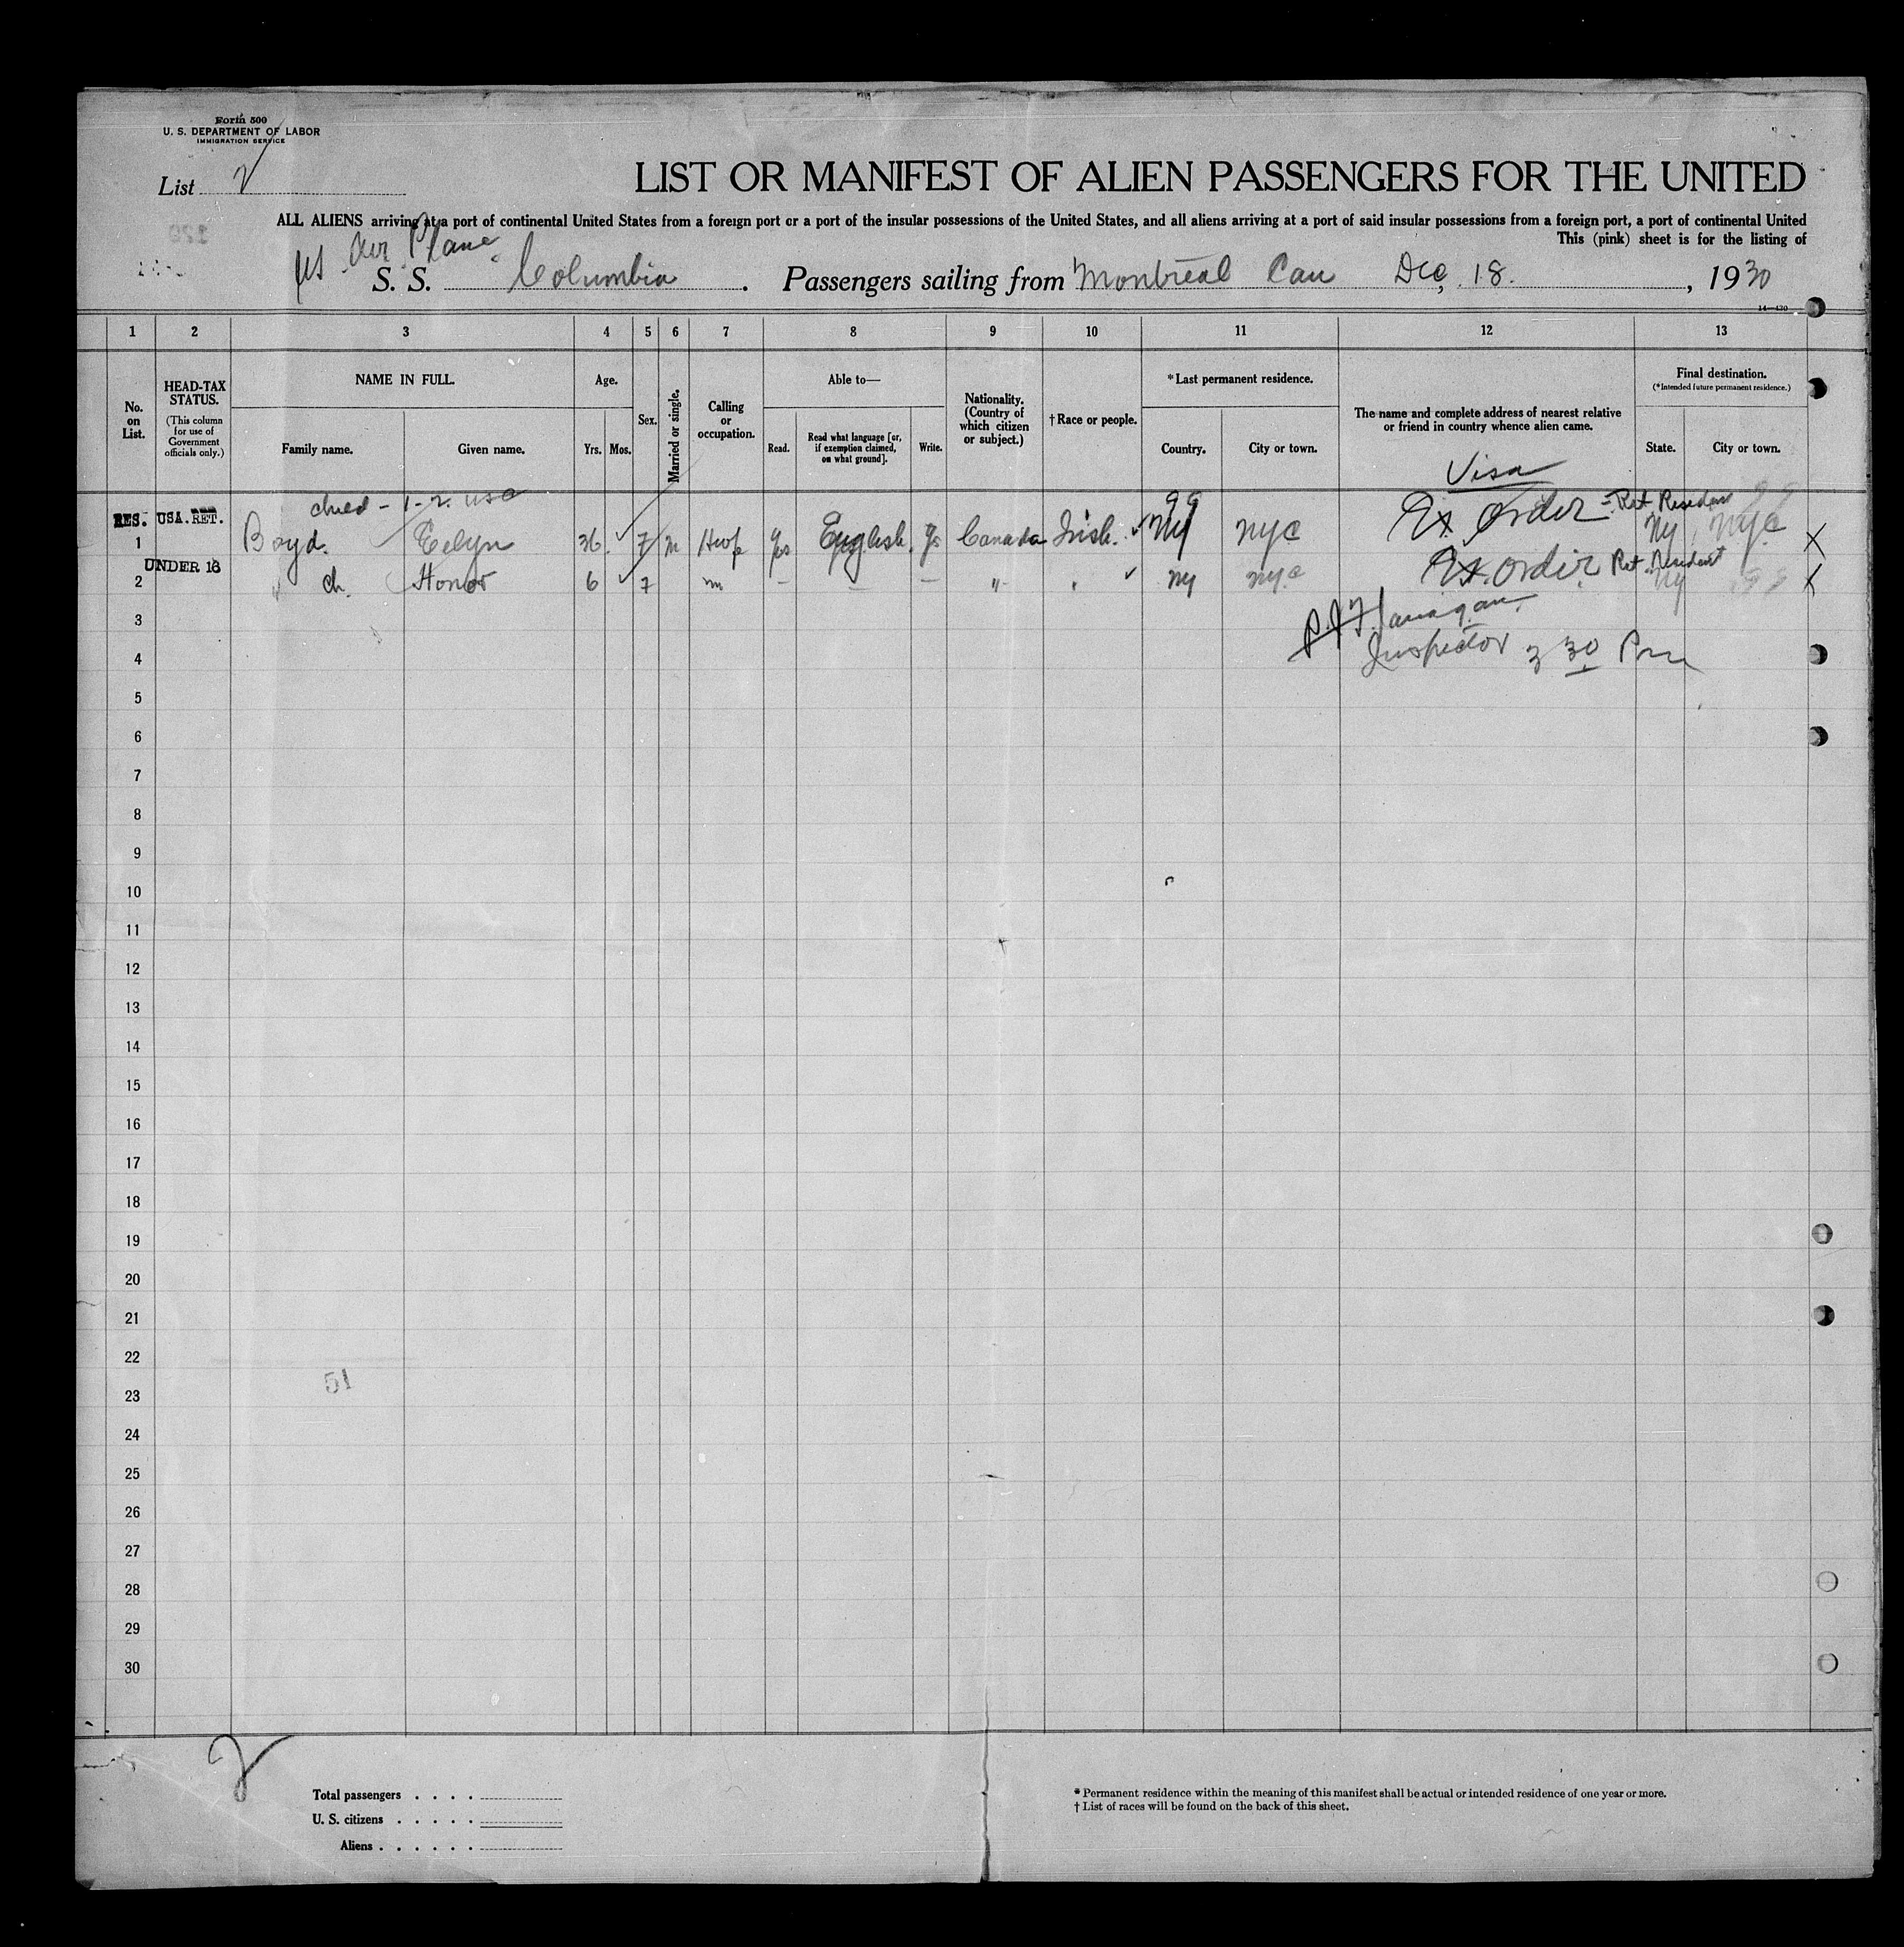 Form 500
U. S. DEPARTMENT OF LABOR
IMMIGRATION SERVICE
List 2
LIST OR MANIFEST OF ALIEN PASSENGERS FOR THE UNITED
ALL ALIENS arriving at a port of continental United States from a foreign port or a port of the insular possessions of the United States, and all aliens arriving at a port of said insular possessions from a foreign port, a port of continental United
This (pink) sheet is for the listing of
Air Plane
S. S. Columbia. Passengers sailing from Montreal Can Dec, 18., 1930
14—430
1 2 3 4 5 6 7 8 9 10 11 12 13
No. on List.
HEAD-TAX STATUS.
(This column for use of Government officials only.)
NAME IN FULL.
Family name. Given name.
Age.
Yrs. Mos.
Sex.
Married or single.
Calling or occupation.
Able to—
Read. Read what language [or, if exemption claimed, on what ground]. Write.
Nationality. (Country of which citizen or subject.)
† Race or people.
* Last permanent residence.
Country. City or town.
The name and complete address of nearest relative or friend in country whence alien came.
Final destination.
(* Intended future permanent residence.)
State. City or town.
Visa
99
RES. USA. RET.
1 Boyd. Evelyn 36 F m Hwfe Yes English. Yes Canada Irish. NY NYC Ex. Order - Ret. Resident NY NYC X
UNDER 16
2 " ch. Honor 6 F — — " " NY NYC Ex. Order Ret. Resident NY X
3 P. J. Flanagan.
4 Inspector 3 30 Pm
5
6
7
8
9
10
11
12
13
14
15
16
17
18
19
20
21
22
51
23
24
25
26
27
28
29
30
2
Total passengers . . . .
U. S. citizens . . . . .
Aliens . . . . . .
* Permanent residence within the meaning of this manifest shall be actual or intended residence of one year or more.
† List of races will be found on the back of this sheet.